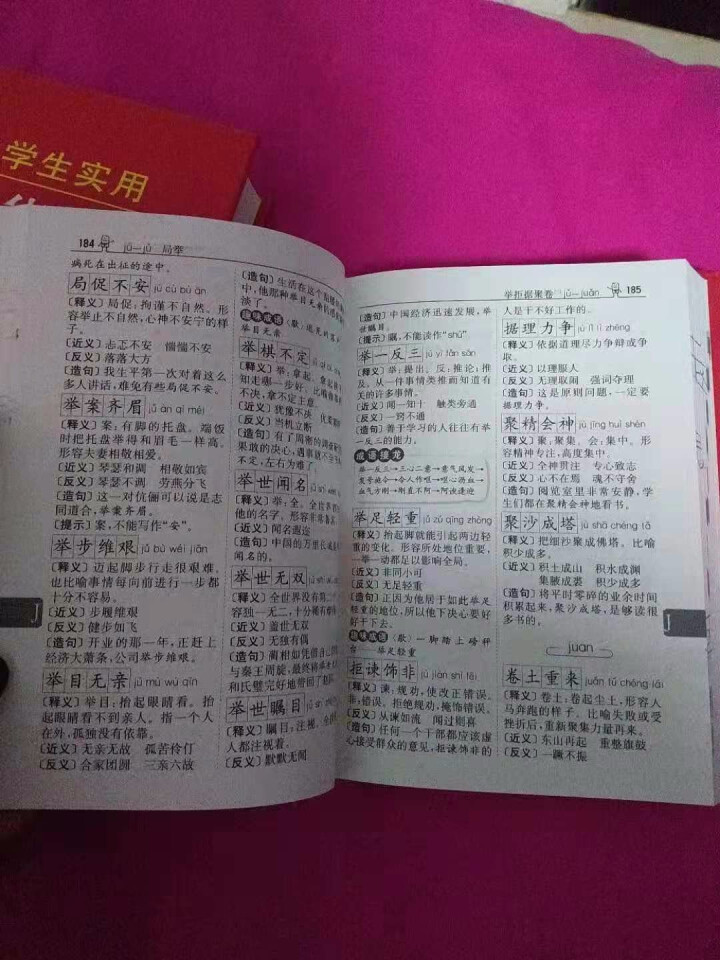 学生实用
184 jú—jǔ 局举
病死在出征的途中。
局促不安 jú cù bù ān
〔释义〕局促,拘谨不自然。形
容举止不自然,心神不安宁的样
子。
〔近义〕忐忑不安 惴惴不安
〔反义〕落落大方
〔造句〕我生平第一次对着这么
多人讲话,难免有些局促不安。
举案齐眉 jǔ àn qí méi
〔释义〕案:有脚的托盘。端饭
时把托盘举得和眉毛一样高。
形容夫妻相敬相爱。
〔近义〕琴瑟和调 相敬如宾
〔反义〕琴瑟不调 劳燕分飞
〔造句〕这一对伉俪可以说是志
同道合,举案齐眉。
〔提示〕案,不能写作“安”。
举步维艰 jǔ bù wéi jiān
〔释义〕迈起脚步行走很艰难。
也比喻事情每向前进行一步都
十分不容易。
〔近义〕步履维艰
〔反义〕健步如飞
〔造句〕开业的那一年,正赶上
经济大萧条,公司举步维艰。
举目无亲 jǔ mù wú qīn
〔释义〕举目:抬起眼睛看。抬
起眼睛看不到亲人。指一个人
在外,孤独没有依靠。
〔近义〕无亲无故 孤苦伶仃
〔反义〕合家团圆 三亲六故
〔造句〕生活在这个
中,他那种举目无亲的
淡了。
趣味成语
举目无亲
举棋不定
〔释义〕举:拿起。拿起
知走哪一步好。比喻做
不决,拿不定主意。
〔近义〕犹豫不决
〔反义〕当机立断
〔造句〕有了周密的调查研究
果敢的决心,遇事就不会
不定,左右为难了。
举世闻名
〔释义〕举:全。全世界
他的名字。形容非常著
〔近义〕闻名遐迩
〔造句〕中国的万里长城
闻名的。
举世无双
〔释义〕全世界没有第二
容独一无二,十分稀有
〔近义〕盖世无双
〔反义〕无独有偶
〔造句〕蔺相如凭借自己
与秦王周旋,最终将举世无双
和氏璧完好地带回了赵国。
举世瞩目
〔释义〕瞩目:注视。全
人都注视着。
〔反义〕默默无闻
J
举拒据聚卷 jǔ—juǎn 185
〔造句〕中国经济迅速发展,举
世瞩目。
〔提示〕瞩,不能读作“shǔ”
举一反三 jǔ yī fǎn sān
〔释义〕举:提出。反:推论;推
及。从一件事情类推而知道有
关的许多事情。
〔近义〕闻一知十 触类旁通
〔反义〕一窍不通
〔造句〕善于学习的人往往有举
一反三的能力。
成语接龙
举一反三→三心二意→意气风发→
发号施令→令人作呕→呕心沥血→
血气方刚→刚直不阿→阿谀逢迎
举足轻重 jǔ zú qīng zhòng
〔释义〕抬脚就能引起两边轻
重的变化。形容所处地位重要,
一举一动都足以影响全局。
〔近义〕非同小可
〔反义〕无足轻重
〔造句〕正因为他居于如此举足
轻重的地位,所以他下决心要好
好干下去。
趣味成语〈歇〉一脚踏上磅秤
台——举足轻重
拒谏饰非 jù jiàn shì fēi
〔释义〕谏:规劝,使改正错误。
非:错误。拒绝规劝,掩饰错误。
〔反义〕从谏如流 闻过则喜
〔造句〕任何一个干部都应该虚
心接受群众的意见,拒谏饰非的
人是干不好工作的。
据理力争 jù lǐ lì zhēng
〔释义〕依据道理尽力争辩或争
取。
〔近义〕以理服人
〔反义〕无理取闹 强词夺理
〔造句〕这是原则问题,一定要
据理力争。
聚精会神 jù jīng huì shén
〔释义〕聚:聚集。会:集中。形
容精神专注,高度集中。
〔近义〕全神贯注 专心致志
〔反义〕心不在焉 魂不守舍
〔造句〕阅览室里非常安静,学
生们都在聚精会神地看书。
聚沙成塔 jù shā chéng tǎ
〔释义〕把细沙聚成佛塔。比喻
积少成多。
〔近义〕积土成山 积水成渊
集腋成裘 积少成多
〔造句〕将平时零碎的业余时间
积累起来,聚沙成塔,是够读很
多书的。
juan
卷土重来 juǎn tǔ chóng lái
〔释义〕卷土:卷起尘土,形容人
马奔跑的样子。比喻失败或受
挫折后,重新聚集力量再来。
〔近义〕东山再起 重整旗鼓
〔反义〕一蹶不振
J